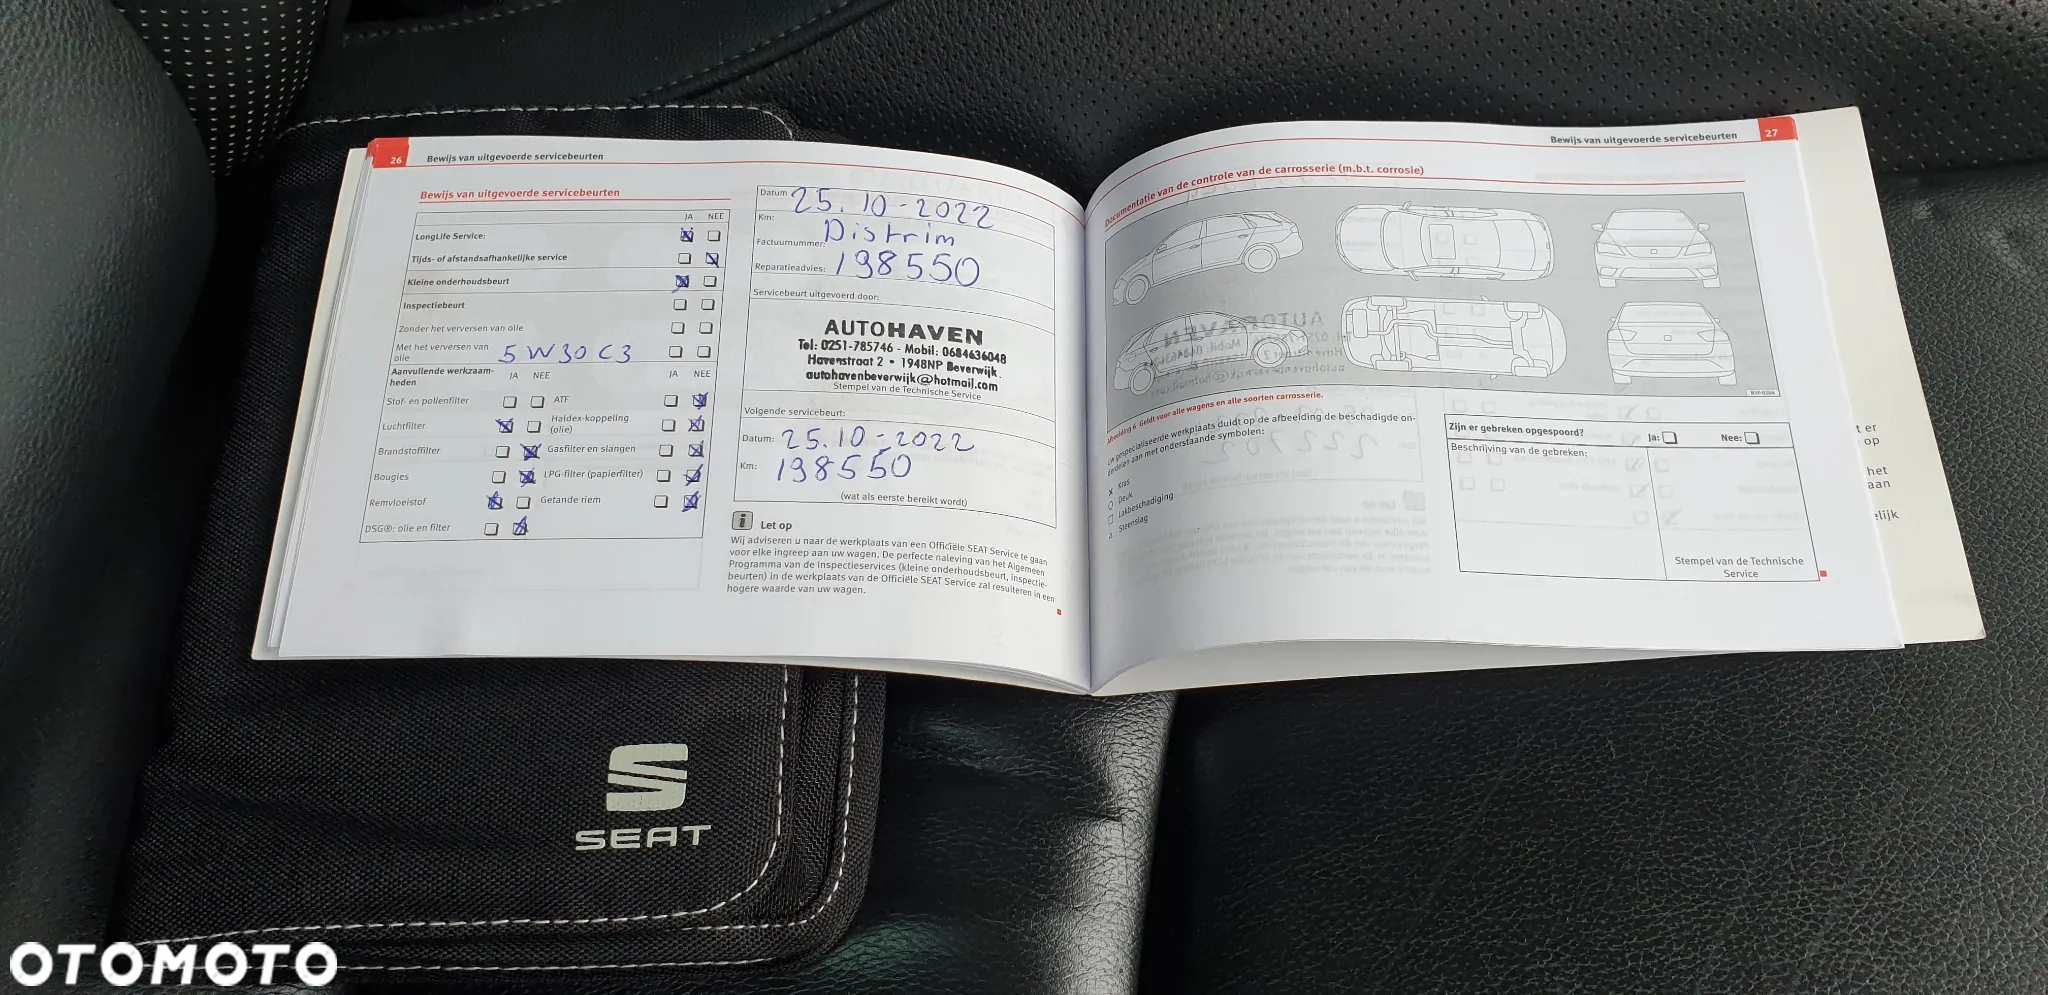 26
Bewijs van uitgevoerde servicebeurten
Bewijs van uitgevoerde servicebeurten
JA NEE
LongLife Service:
Tijds- of afstandsafhankelijke service
Kleine onderhoudsbeurt
Inspectiebeurt
Zonder het verversen van olie
Met het verversen van
olie
5W30 C3
Aanvullende werkzaam-
heden
JA NEE
JA NEE
Stof- en pollenfilter
ATF
Luchtfilter
Haldex-koppeling
(olie)
Brandstoffilter
Gasfilter en slangen
Bougies
LPG-filter (papierfilter)
Remvloeistof
Getande riem
DSG®: olie en filter
Datum 25.10-2022
Km:
Distrim
Factuurnummer:
Reparatieadvies: 198550
Servicebeurt uitgevoerd door:
AUTOHAVEN
Tel: 0251-785746 - Mobil: 0684636048
Havenstraat 2 • 1948NP Beverwijk.
autohavenbeverwijk@hotmail.com
Stempel van de Technische Service
Volgende servicebeurt:
Datum: 25.10-2022
Km: 198550
(wat als eerste bereikt wordt)
i Let op
Wij adviseren u naar de werkplaats van een Officiële SEAT Service te gaan
voor elke ingreep aan uw wagen. De perfecte naleving van het Algemeen
Programma van de Inspectieservices (kleine onderhoudsbeurt, inspectie-
beurten) in de werkplaats van de Officiële SEAT Service zal resulteren in een
hogere waarde van uw wagen.
Bewijs van uitgevoerde servicebeurten
27
Documentatie van de controle van de carrosserie (m.b.t. corrosie)
Afbeelding 6 Geldt voor alle wagens en alle soorten carrosserie.
Uw gespecialiseerde werkplaats duidt op de afbeelding de beschadigde on-
derdelen aan met onderstaande symbolen:
x Kras
Deuk
Lakbeschadiging
Steenslag
Zijn er gebreken opgespoord?
Ja:
Nee:
Beschrijving van de gebreken:
Stempel van de Technische
Service
t er
op
het
aan
elijk
SEAT
OTOMOTO